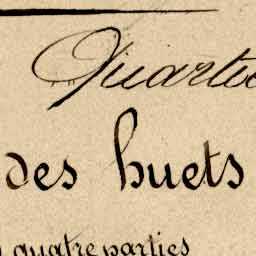 Quartie
des huets
quatre parties